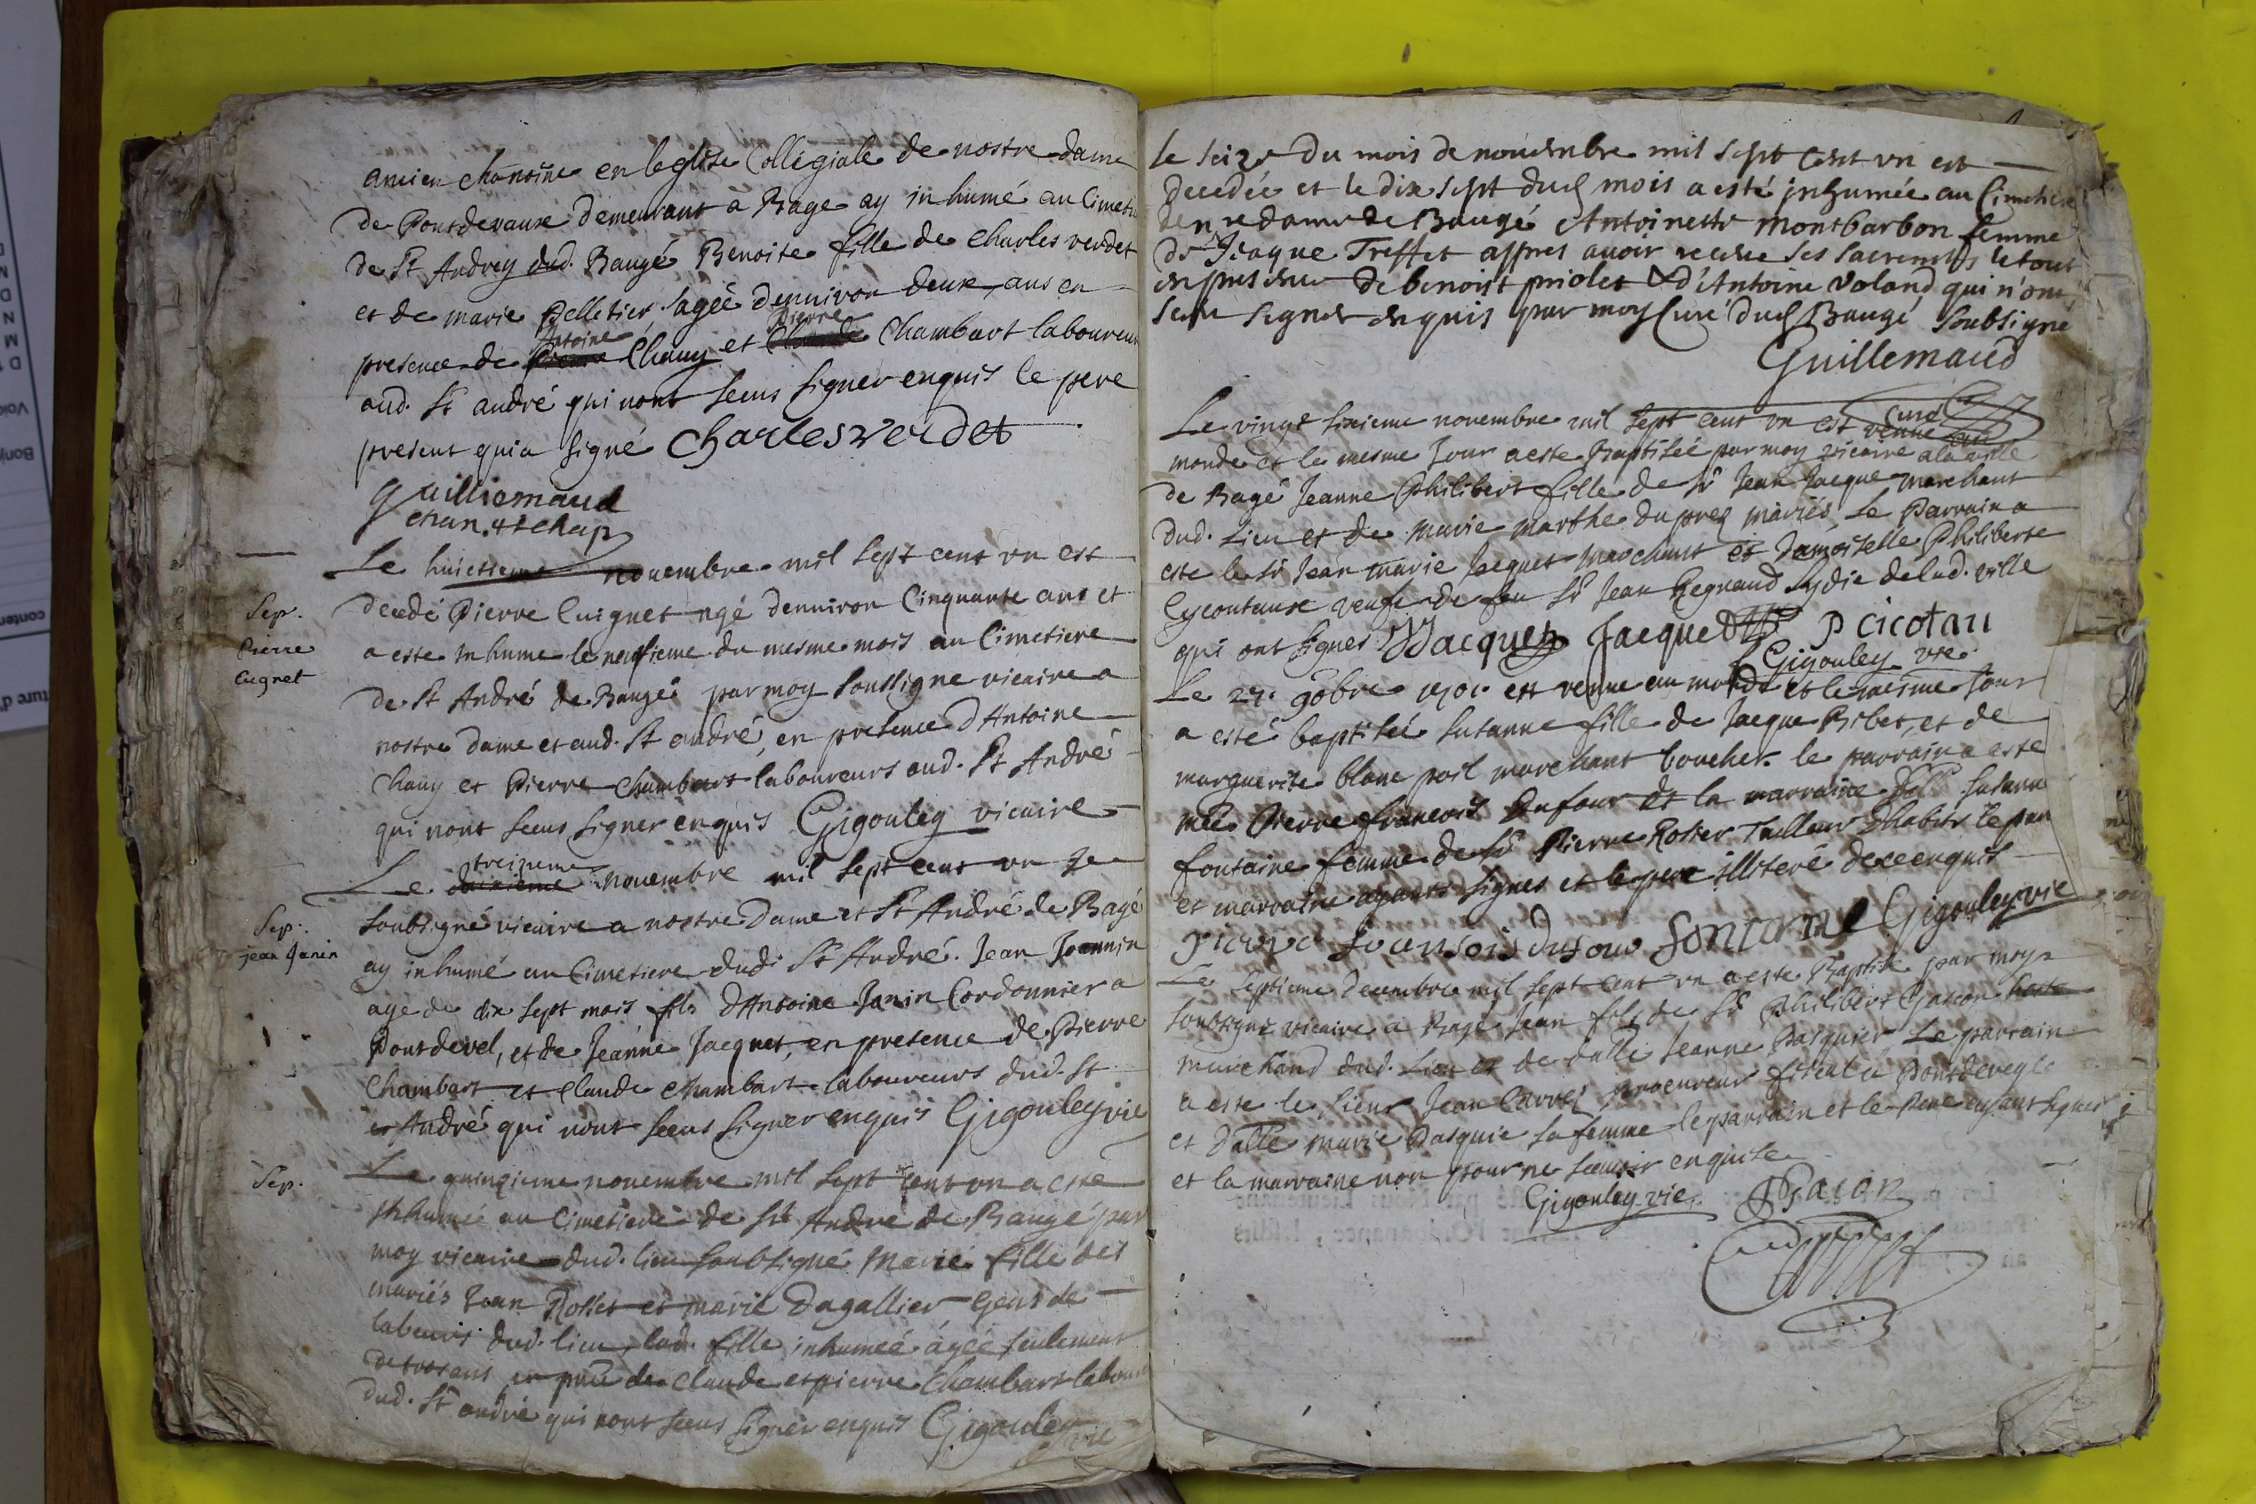 amcien chanoine en leglise Collégiale de nostre dame
de Pontdevaux demeurant à Bage ay inhumé au Cimeti
de St Andrey dud. Baugé Benoite fille de Charles verdet
et de marie Pelletier agée denniron deux ans en
Antoine Pierre
presence de Chauy et Chambart laboureur
aud. St andré qui nont sceus signer enquis le pere
present qui a signé Charles verdet
Guilliemaud
chan. et chap
Le huictieme nouembre mil sept cent vn est
Sep.
Pierre
Cugnet
decedé Pierre Cuignet agé denniron Cinquante ans et
a este inhume le neufieme du mesme mois au Cimetiere
de St André de Baugé par moy soussigne vicaire a
nostre dame et aud. St andré, en presence d'Antoine
Chauy et Pierre Chambart laboureurs aud. St André
qui nont sceus signer enquis Gigouley vicaire
treizieme
Le nouembre mil sept cent vn Je
Sep.
jean Janin
soubsigné vicaire a nostre Dame et St André de Bagé
ay inhumé au Cimetiere dud. St André. Jean Joannin
age de dix sept mois fils d'Antoine Janin Cordonnier a
Pontdevel, et de Jeanne Jacquet, en presence de Pierre
Chambart et Claude Chambart laboureurs dud. St
André qui nont sceus signer enquis Gigouley vic
Sep.
Le quinzieme nouembre mil sept cent vn a esté
inhumée au Cimetiere de St Andre de Baugé par
moy vicaire dud. lieu soubsigné Marie fille des
mariés Jean Rosset et marie Dagallier gens de
labeurs dud. lieu, lad. fille inhumée ágée seulement
de trois ans en pñce de Claude et pierre Chambart labour
dud. St andré qui nont sceus signer enquis Gigouley
vic
le seize du mois de nouembre mil sept Cent vn est
decedée et le dix sept dud mois a esté inhumée au Cimetiere
de nre dame de Baugé Antoinette montbarbon femme
de Jeaque Treffet appres auoir receue ses sacremts le tout
en presence de benoist priolet & d'Antoine Voland qui n'ont
sceu signer enquis par moy Curé dud Baugé soubsigné
Guillemaud
Curé
Le vingt sixieme nouembre mil sept cent vn est venue au
monde et le mesme Jour a este Baptisée par moy vicaire a la ville
de Bagé Jeanne Philibert fille de Sr Jean Jacque marchant
dud. Lieu et de marie marthe duprez mariés, Le Parrain a
este le Sr Jean marie Jacquet marchant et damoiselle Philiberte
veufe de feu Sr Jean Regnaud sydic de lad. ville
qui ont signes JJacquet Jacquet P cicotau
Gigouley vic
Le 27. 9bre 1701. est venue au monde et le mesme Jour
a esté baptisée susanne fille de Jacque Ribet, et de
marguerite blanc poil marchant boucher. le parrain a este
Pierre francois dufour et la marraine susanne
fontaine femme de Sr Pierre Rosier Tailleur d'habits le par
et marraine ayants signes et le pere illiteré de ce enquis
piere fransois dufour fontaine Gigouley vic
Le septieme decembre mil sept cent vn a este Baptisé par moy
soubsigné vicaire a Bagé Jean fils de Sr Philibert Gacon
marchand dud. Lieu et de dalle Jeanne Pasquier Le parrain
a este le sieur Jean Carrel procureur fiscal a Pontdevegle
et dalle marie Pasquie sa femme le parrain et le pere ayant signes
et la marraine non pour ne scauoir enquise
Gigouley vic. Gacon